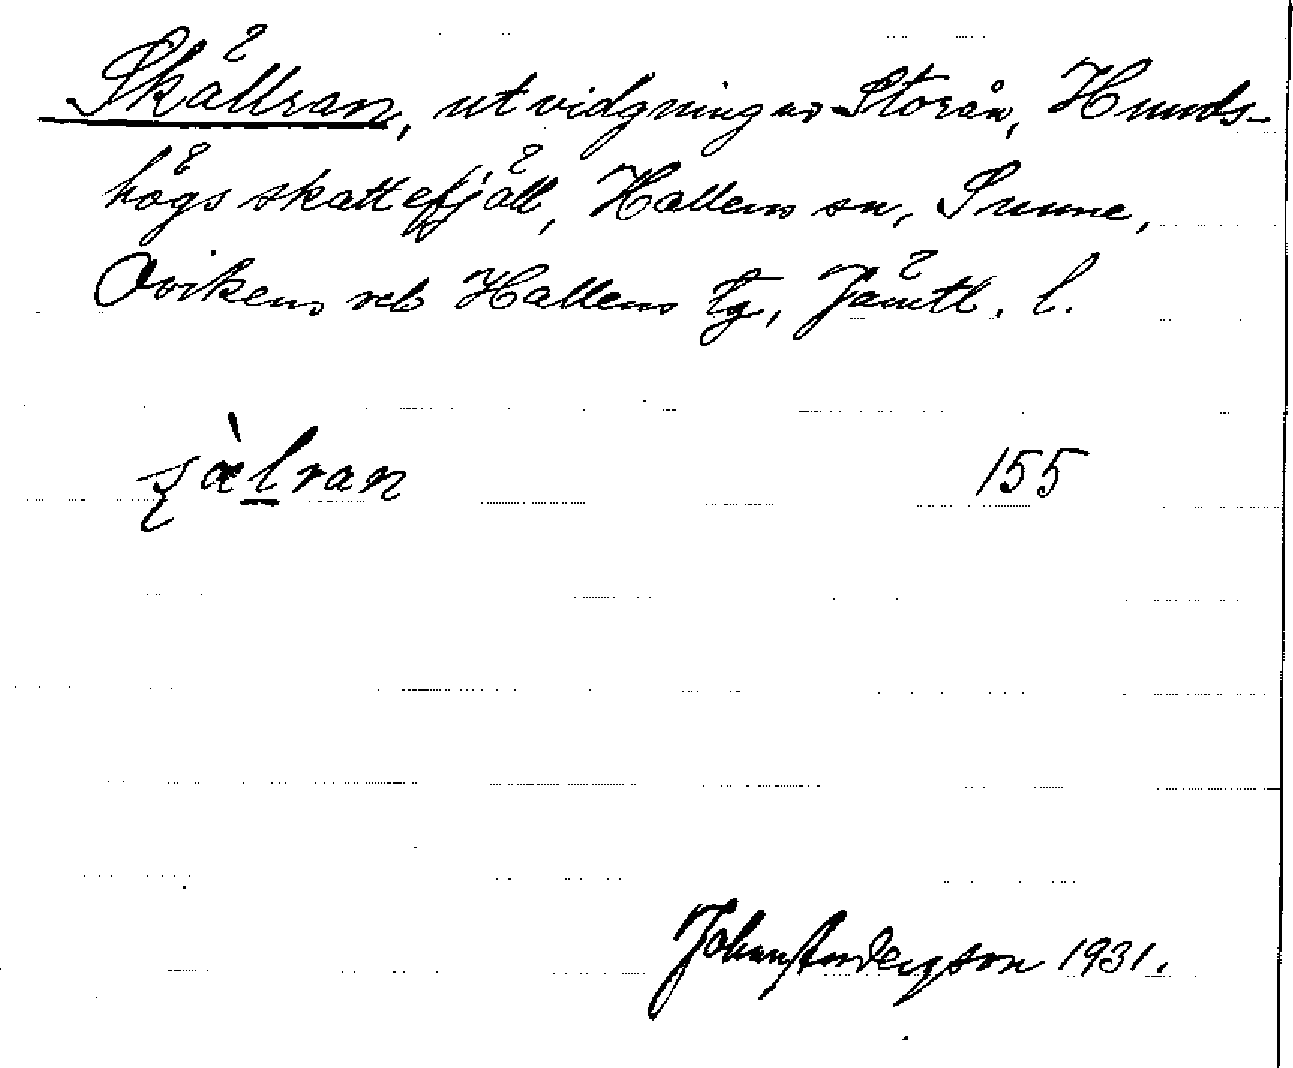 Skällran, utvidgning av Storån, Hunds-
högs skattefjäll, Hallens sn, Sunne,
Ovikens och Hallens tg, Jämtl. l.
ʂæ̀lran 155
Johan Andersson 1931.